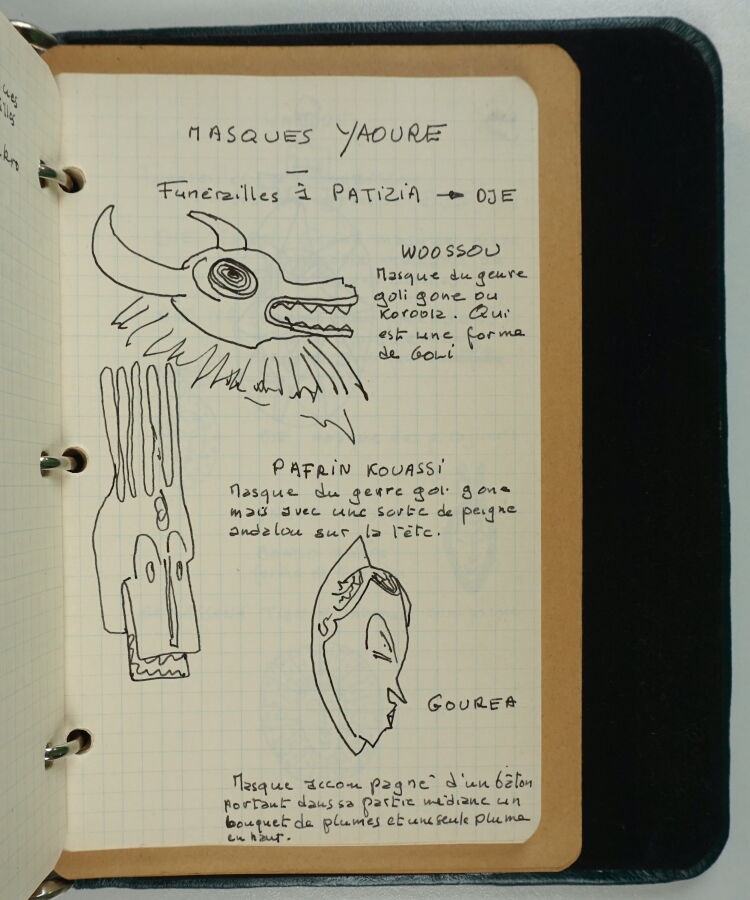 MASQUES YAOURE
Funérailles à PATIZIA → DJE
WOOSSOU
Masque du genre
goli gone ou
Est une forme
de GOLI
PAFRIN KOUASSI
Masque du genre goli gone
mais avec une sorte de peigne
andalou sur la tête.
GOUREA
Masque accompagné d'un bâton
portant dans sa partie médiane un
bouquet de plumes et une seule plume
en haut.